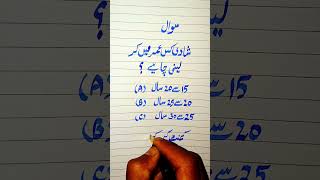 سوال
شادی کس عمر میں کر
لینی چاہیے ؟
(A) 15 سے 20 سال
(B) 20 سے 25 سال
(C) 25 سے 30 سال